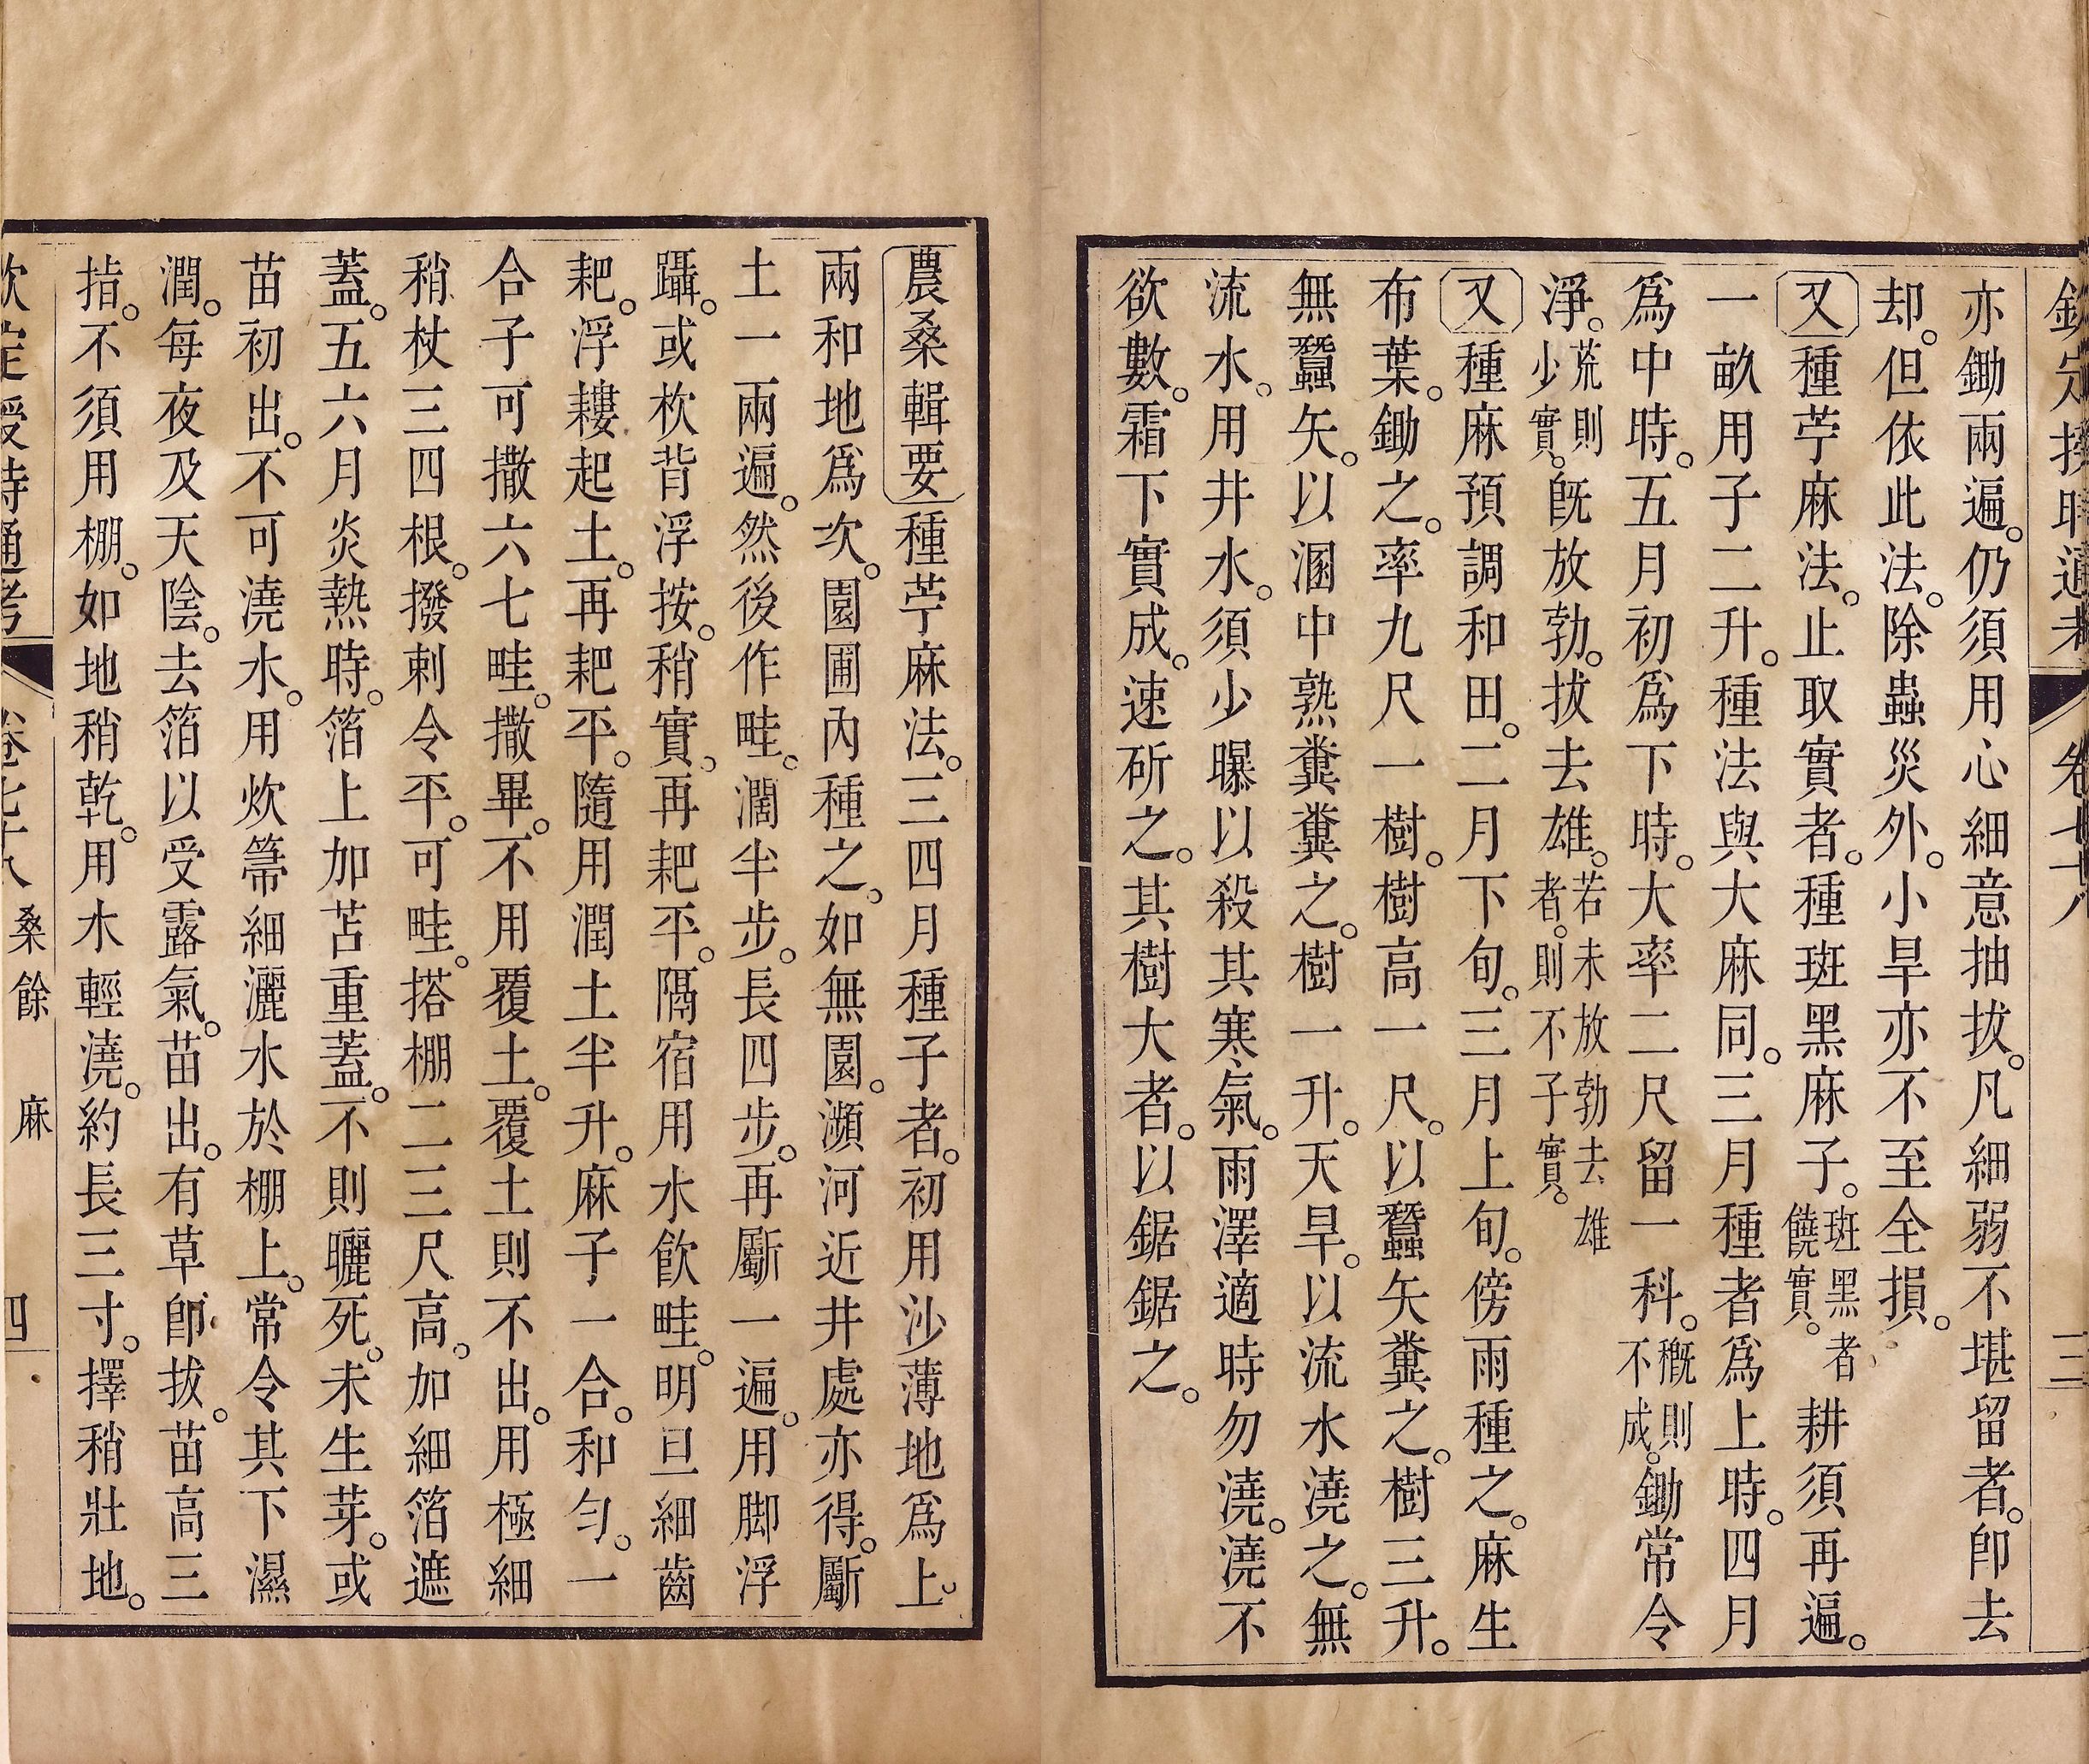 欽定授時通考 卷七十八 三
亦鋤兩遍。仍須用心細意抽拔。凡細弱不堪留者。卽去
却。但依此法。除蟲災外。小旱亦不至全損。
又種苧麻法。止取實者。種班黑麻子。班黑者饒實。耕須再遍。
一畝用子二升。種法與大麻同。三月種者爲上時。四月
爲中時。五月初爲下時。大率二尺留一科。穊則不成。鋤常令
淨。荒則少實。旣放勃。拔去雄。若未放勃去雄者。則不子實。
又種麻預調和田。二月下旬。三月上旬。傍雨種之。麻生
布葉。鋤之。率九尺一樹。樹高一尺。以蠶矢糞之。樹三升。
無蠶矢。以溷中熟糞糞之。樹一升。天旱。以流水澆之。無
流水。用井水。須少曝以殺其寒氣。雨澤適時勿澆。澆不
欲數。霜下實成。速斫之。其樹大者。以鋸鋸之。
農桑輯要種苧麻法。三四月種子者。初用沙薄地爲上。
兩和地爲次。園圃內種之。如無園。瀕河近井處亦得。斸
土一兩遍。然後作畦。濶半步。長四步。再斸一遍。用脚浮
躡。或杴背浮按。稍實。再耙平。隔宿用水飮畦。明旦細齒
耙。浮耬起土。再耙平。隨用潤土半升。麻子一合。和勻。一
合子可撒六七畦。撒畢。不用覆土。覆土則不出。用極細
稍杖三四根。撥剌令平。可畦。搭棚二三尺高。加細箔遮
蓋。五六月炎熱時。箔上加苫重蓋。不則曬死。未生芽。或
苗初出。不可澆水。用炊箒細灑水於棚上。常令其下濕
潤。每夜及天陰。去箔以受露氣。苗出。有草卽拔。苗高三
指。不須用棚。如地稍乾。用水輕澆。約長三寸。擇稍壯地。
欽定授時通考 卷七十八 桑餘 麻 四